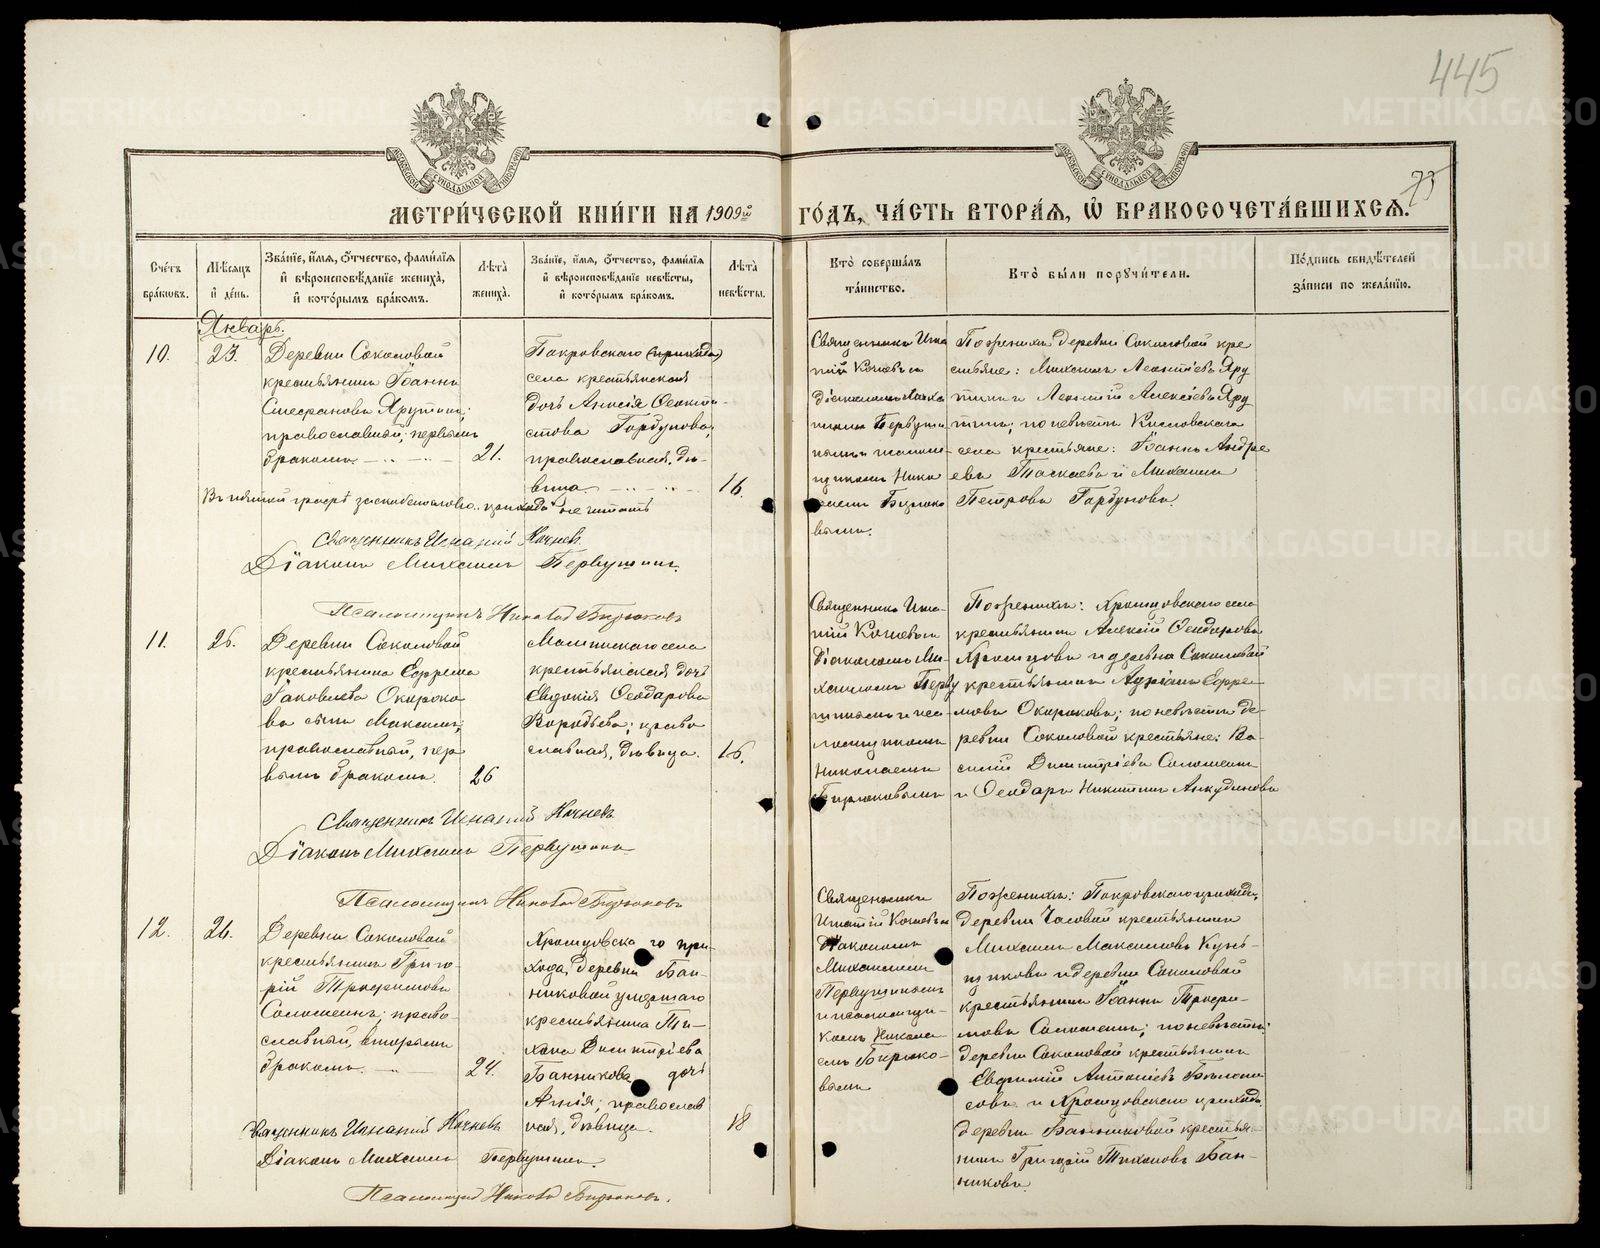 445
75
МЕТРИ́ЧЕСКОЙ КНИ́ГИ НА 1909й
ГО́ДЪ, ЧА́СТЬ ВТОРА́Я, Ѡ БРАКОСОЧЕТА́ВШИХСЯ.
Сче́тъ бра́ковъ.
Мѣ́сяцъ и́ де́нь.
Зва́нїе, и́мя, о́тчество, фами́лїя и́ вѣроисповѣ́данїе жениха̀, и́ кото́рымъ бра́комъ.
Лѣта̀ жениха̀.
Зва́нїе, и́мя, о́тчество, фами́лїя и́ вѣроисповѣ́данїе невѣ́сты, и́ кото́рымъ бра́комъ.
Лѣта̀ невѣ́сты.
Кто̀ соверша́лъ та́инство.
Кто̀ бы́ли поручи́тели.
По́дпись свидѣ́телей за́писи по жела́нїю.
Январь.
10.
23.
Деревни Соколовой
крестьянинъ Іоаннъ
Стефановъ Ярутинъ;
православный, первымъ
бракомъ.
21.
Покровскаго (прихода)
села крестьянская
дочь Анисія Ѳеокти-
стова Горбунова,
православная, дѣ-
вица.
16.
Священникъ Игна
тій Кочневъ и
діакономъ Миха
иломъ Первуши
нымъ и псалом-
щикомъ Нико
лаемъ Бирюко
вымъ.
По женихѣ деревни Соколовой кре
стьяне: Михаилъ Леонтіевъ Яру
тинъ и Леонтій Алексіевъ Яру
тинъ; по невѣстѣ Кисловскаго
села крестьяне: Іоаннъ Андре
евъ Таскаевъ и Михаилъ
Петровъ Горбуновъ.
Въ пятой графѣ заскобленное слово "прихода" не читать
Священникъ Игнатій Кочневъ
Діаконъ Михаилъ Первушинъ.
Псаломщикъ Николай Бирюковъ
11.
25.
Деревни Соколовой
крестьянина Ефрема
Іаковлева Окороко
ва сынъ Максимъ;
православный, пер
вымъ бракомъ.
26
Малинскаго села
крестьянская дочь
Евдокія Ѳеодорова
Воробьева; право
славная, дѣвица.
16.
Священникъ Игна-
тій Кочневъ и
діакономъ Ми-
хаиломъ Перву
шинымъ и пса-
ломщикомъ
Николаемъ
Бирюковымъ
По женихѣ: Хромцовскаго села
крестьянинъ Алексій Ѳеодоровъ
Хромцовъ и деревни Соколовой
крестьянинъ Адріанъ Ефре-
мовъ Окороковъ; по невѣстѣ де-
ревни Соколовой крестьяне: Ва-
силій Димитріевъ Соломеинъ
и Ѳеодоръ Никитинъ Анкудиновъ
Священникъ Игнатій Кочневъ
Діаконъ Михаилъ Первушинъ
Псаломщикъ Николай Бирюковъ
12.
26.
Деревни Соколовой
крестьянинъ Григо-
рій Трофимовъ
Соломеинъ; право-
славный, вторымъ
бракомъ.
24.
Хромцовскаго при-
хода, деревни Бан-
никовой умершаго
крестьянина Ти-
хона Димитріева
Банникова дочь
Анна; православ
ная, дѣвица.
18
Священникъ
Игнатій Кочневъ
Діакономъ
Михаиломъ
Первушинымъ
и псаломщи-
комъ Никола-
емъ Бирюко-
вымъ
По женихѣ: Покровскаго прихода,
деревни Часовой крестьянинъ
Михаилъ Максимовъ Кунь-
щиковъ и деревни Соколовой
крестьянинъ Іоаннъ Трофи-
мовъ Соломеинъ; по невѣстѣ:
деревни Соколовой крестьянинъ
Евфимій Антоніевъ Бѣлоно-
совъ и Хромцовскаго прихода
деревни Банниковой крестья-
нинъ Григорій Тихоновъ Бан-
никовъ
Священникъ Игнатій Кочневъ
Діаконъ Михаилъ Первушинъ.
Псаломщикъ Николай Бирюковъ.
METRIKI.GASO-URAL.RU